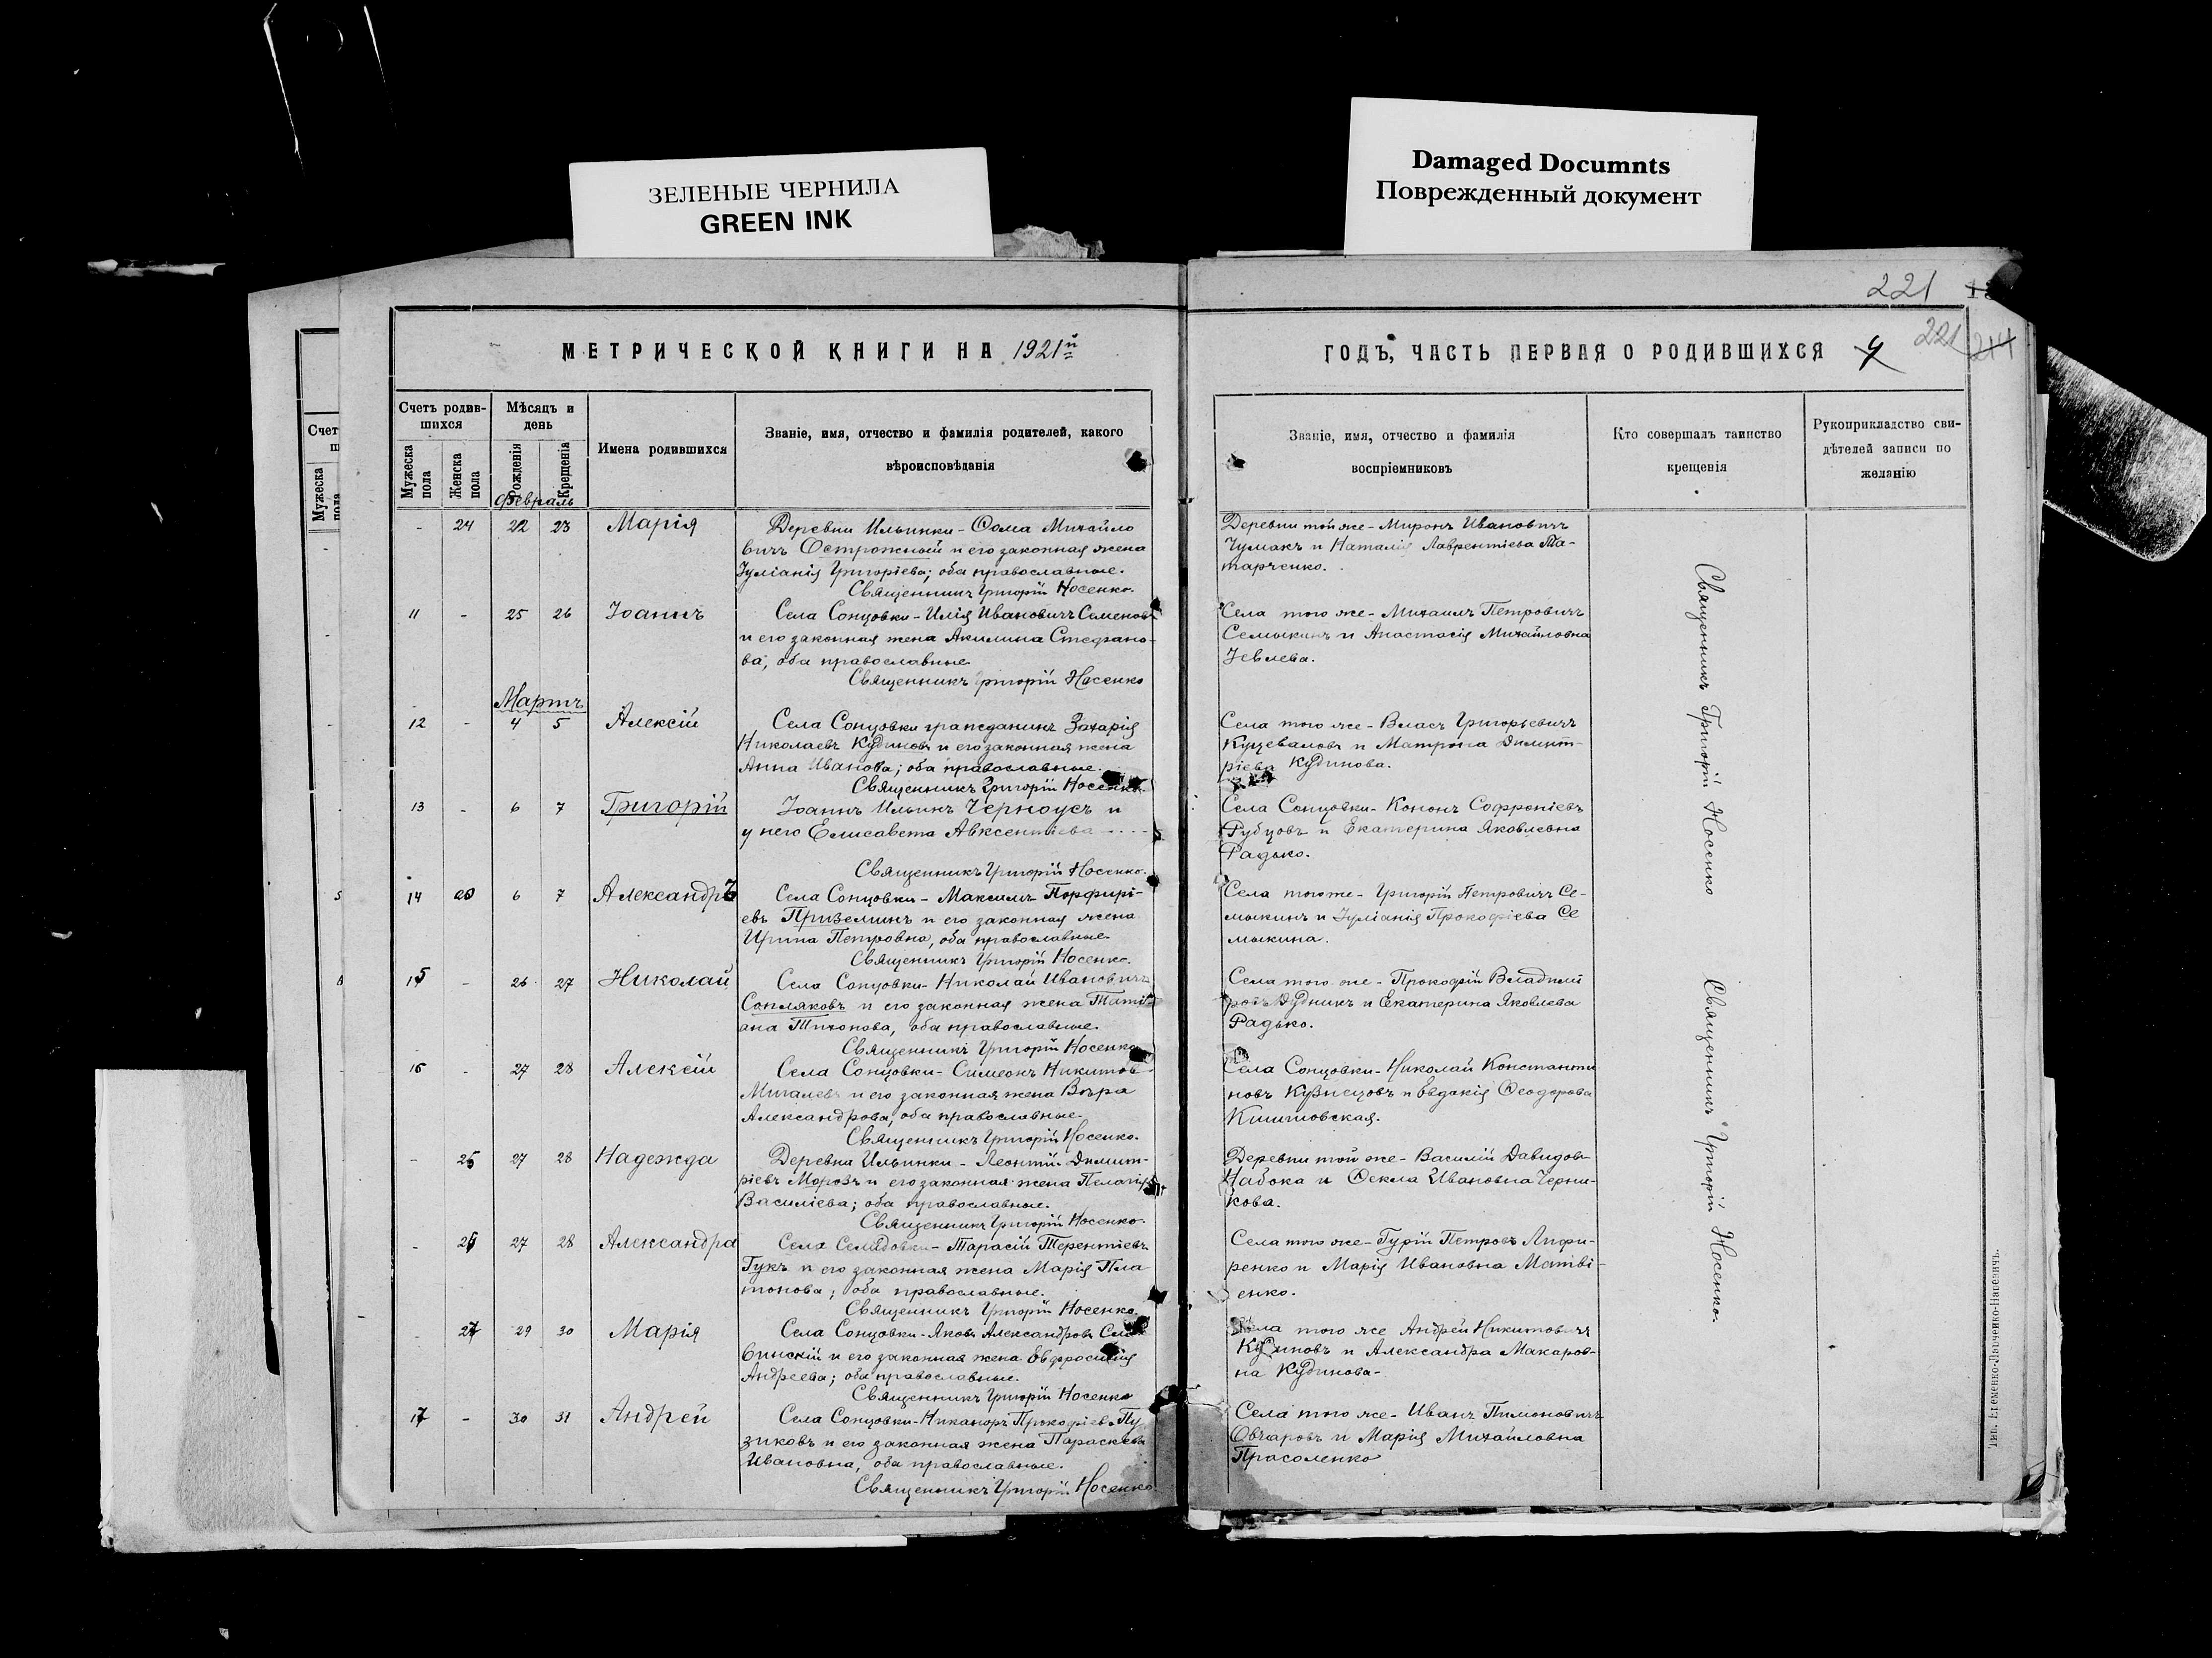 ЗЕЛЕНЫЕ ЧЕРНИЛА
GREEN INK
Damaged Documnts
Поврежденный документ
221
221
244
МЕТРИЧЕСКОЙ КНИГИ НА 1921й
ГОДЪ, ЧАСТЬ ПЕРВАЯ О РОДИВШИХСЯ
Счетъ родив-
шихся
Мужеска пола
Женска пола
Мѣсяцъ и
день
Рожденія
Крещенія
Имена родившихся
Званіе, имя, отчество и фамилія родителей, какого
вѣроисповѣданія
Званіе, имя, отчество и фамилія
воспріемниковъ
Кто совершалъ таинство
крещенія
Рукоприкладство сви-
дѣтелей записи по
желанію
Счет
Мужеска
пола
Февраль
- 24 22 23 Марія
Деревни Ильинки - Ѳома Михайло
вичъ Острожный и его законная жена
Іуліанія Григоріева; оба православные.
Священникъ Григорій Носенко.
Деревни той же - Миронъ Ивановичъ
Чумакъ и Наталія Лаврентіева Та-
тарченко.
11 - 25 26 Іоаннъ
Села Сонцовки - Илія Ивановичъ Семенов
и его законная жена Акилина Стефано-
ва; оба православные
Священникъ Григорій Носенко
Села того же - Михаилъ Петровичъ
Семыкинъ и Анастасія Михайловна
Іевлева.
Мартъ
12 - 4 5 Алексій
Села Сонцовки гражданинъ Захарія
Николаевъ Кудиновъ и его законная жена
Анна Иванова; оба православные.
Священникъ Григорій Носенко
Села того же - Власъ Григорьевичъ
Куцеваловъ и Матрона Димит-
ріева Кудинова.
13 - 6 7 Григорій
Іоаннъ Ильинъ Черноусъ и
у него Елисавета Авксентіева
Священникъ Григорій Носенко.
Села Сонцовки - Кононъ Софроніевъ
Рубцовъ и Екатерина Яковлевна
Радько.
14 6 7 Александръ
Села Сонцовки - Максимъ Порфирі-
евъ Привелинъ и его законная жена
Ирина Петровна, оба православные
Священникъ Григорій Носенко.
Села того же - Григорій Петровичъ Се-
мыкинъ и Іуліанія Прокофіева Се
мыкина.
15 - 26 27 Николай
Села Сонцовки - Николай Ивановичъ
Сопляковъ и его законная жена Таті
ана Тихонова, оба православные.
Священникъ Григорій Носенко
Села того же - Прокофій Владимі
ровъ Дудникъ и Екатерина Яковлева
Радько.
16 - 27 28 Алексій
Села Сонцовки - Симеонъ Никитов
Мигалевъ и его законная жена Вѣра
Александрова, оба православные.
Священникъ Григорій Носенко.
Села Сонцовки - Николай Константи
новъ Кузнецовъ и Евдокія Ѳеодорова
- 25 27 28 Надежда
Деревни Ильинки - Леонтій Димит-
ріевъ Морозъ и его законная жена Пелагія
Василіева; оба православные.
Священникъ Григорій Носенко.
Деревни той же - Василій Давидов
Набока и Ѳекла Ивановна Черни-
кова.
- 26 27 28 Александра
Села Селидовки - Тарасій Терентіевъ
Гукъ и его законная жена Марія Пла
тонова; оба православные.
Священникъ Григорій Носенко.
Села того же - Гурій Петровъ Лифи-
ренко и Марія Ивановна Матві-
енко.
- 27 29 30 Марія
Села Сонцовки - Яковъ Александровъ Сла
винскій и его законная жена Евфросинія
Андреева; оба православные.
Священникъ Григорій Носенко
Села того же Андрей Никитовичъ
Кудиновъ и Александра Макаров-
на Кудинова -
17 - 30 31 Андрей
Села Сонцовки - Никаноръ Прокофіевъ Пу
зиковъ и его законная жена Параскева
Ивановна, оба православные.
Священникъ Григорій Носенко
Села того же - Иванъ Пимоновичъ
Овчаровъ и Марія Михайловна
Прасоленко
Священникъ Григорій Носенко
Священникъ Григорій Носенко.